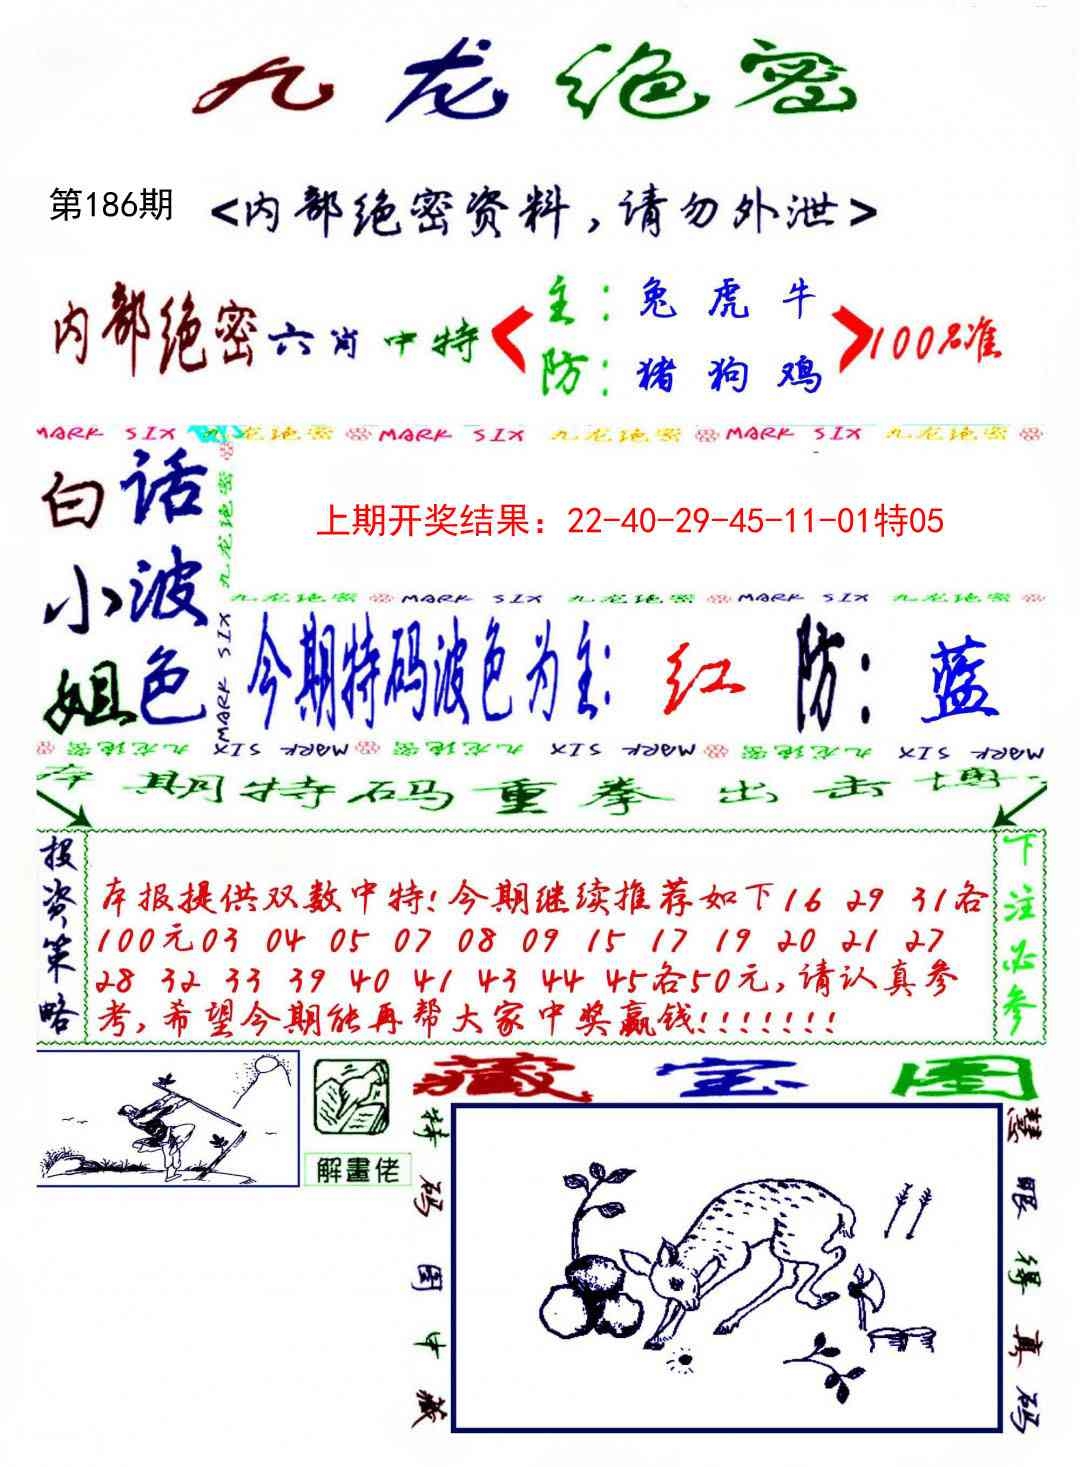 九龙绝密
第186期 <内部绝密资料,请勿外泄>
内部绝密六肖中特
主:兔 虎 牛
防:猪 狗 鸡
100%准
MARK SIX 九龙绝密 MARK SIX 九龙绝密 MARK SIX 九龙绝密
白小姐
话波色
九龙绝密
MARK SIX
上期开奖结果：22-40-29-45-11-01特05
九龙绝密 MARK SIX 九龙绝密 MARK SIX 九龙绝密
今期特码波色为主:红 防:蓝
九龙绝密 MARK SIX MARK SIX 九龙绝密 MARK SIX 九龙绝密 MARK SIX
本期特码重拳出击博
投资策略
下注必参
本报提供双数中特!今期继续推荐如下16 29 31各
100元03 04 05 07 08 09 15 17 19 20 21 27
28 32 33 39 40 41 43 44 45各50元,请认真参
考,希望今期能再帮大家中奖赢钱!!!!!!!
解畫佬
藏宝图
特码图中藏
慧眼得真码